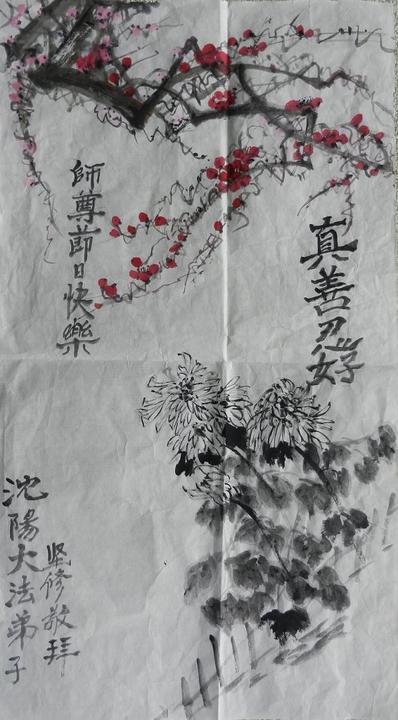 真善忍好
師尊節日快樂
坚修敬拜
沈陽大法弟子